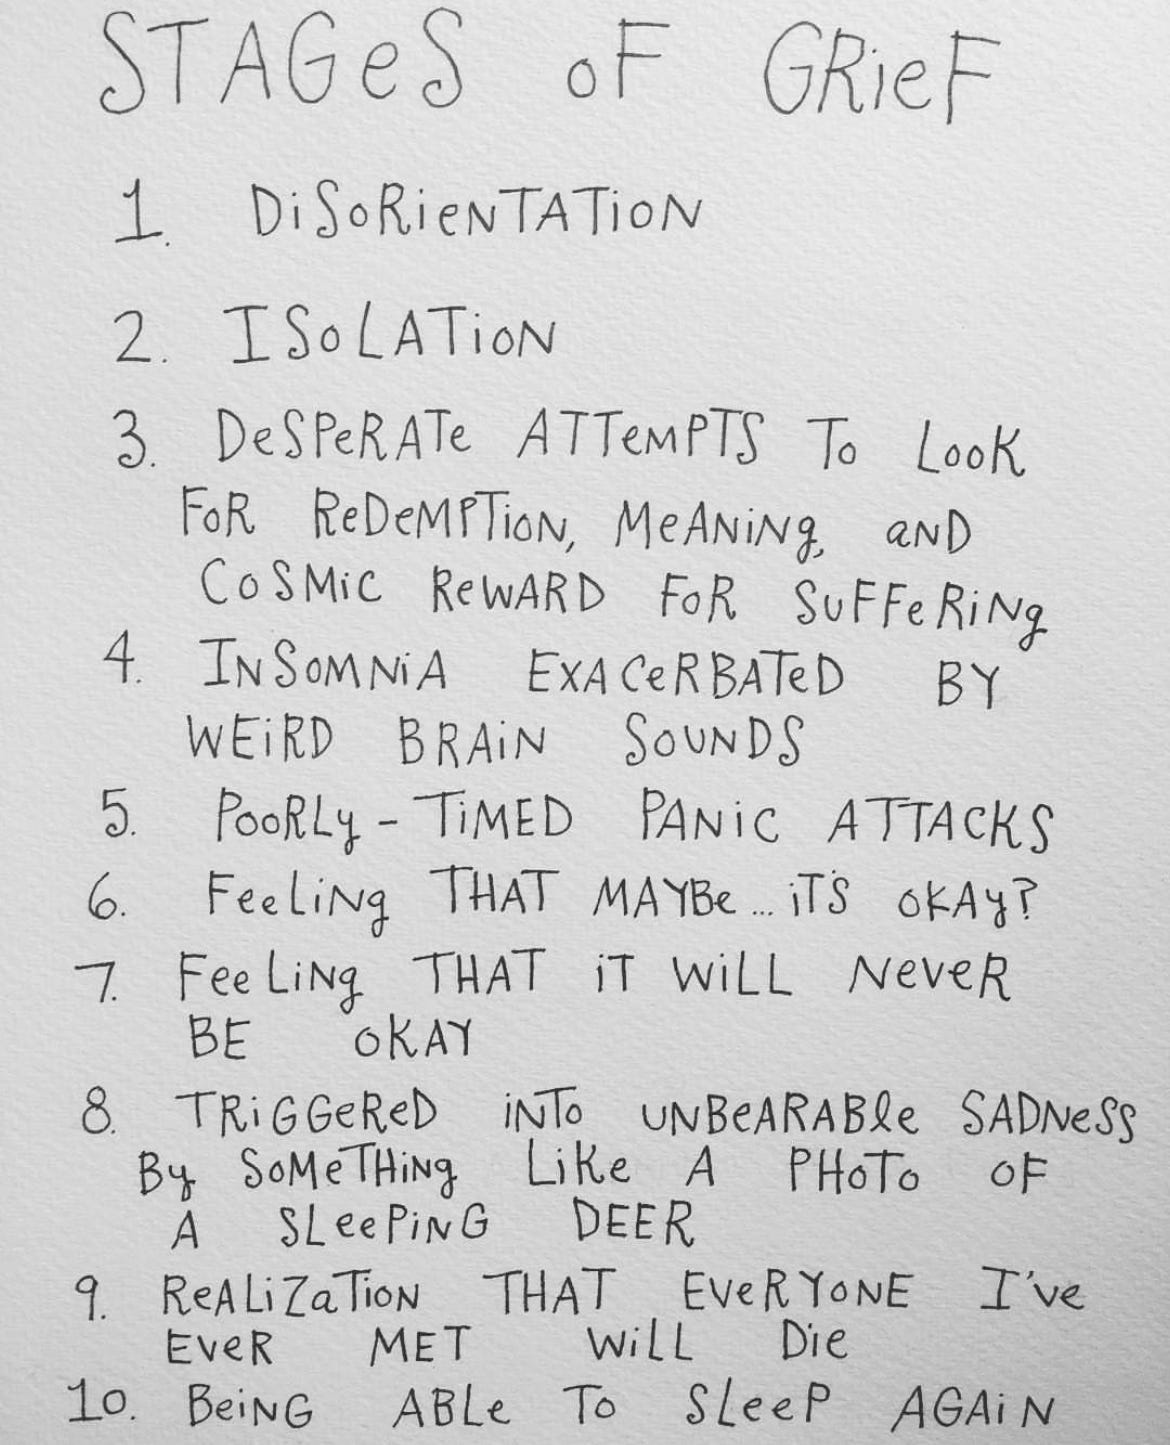 STAGeS oF GRieF
1. DiSoRieNTATioN
2. ISoLATioN
3. DeSPeRATe ATTeMPTS To LooK
FoR ReDeMPTioN, MeANiNg, aND
CoSMiC ReWARD FoR SuFFeRiNg
4. INSoMNiA EXACeRBATeD BY
WEiRD BRAiN SoUNDS
5. PooRLy - TiMED PANiC ATTACKS
6. FeeLiNg THAT MAYBe... iT'S oKAy?
7. FeeLiNg THAT iT WiLL NeveR
BE oKAY
8. TRiGGeReD iNTo UNBeARABle SADNeSS
By SoMeTHiNg LiKe A PHoTo OF
A SLeePiNG DEER
9. ReALiZaTioN THAT EVeRYoNE I've
EVeR MET WiLL Die
10. BeiNG ABLe To SLeeP AGAiN